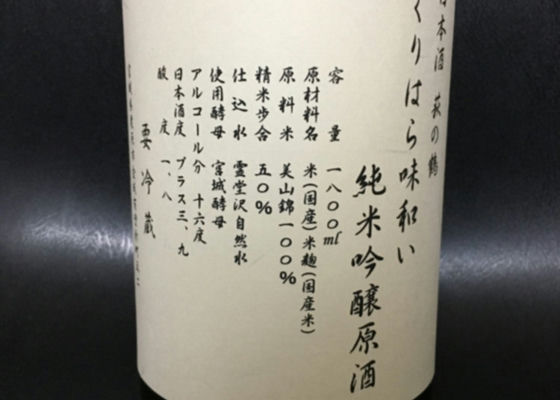 日本酒 萩の鶴
くりはら味和い
純米吟醸原酒
容量 一八〇〇ml
原材料名 米(国産)米麹(国産米)
原料米 美山錦一〇〇%
精米歩合 五〇%
仕込水 霊堂沢自然水
使用酵母 宮城酵母
アルコール分 十六度
日本酒度 プラス三、九
酸度 一、八
要冷蔵